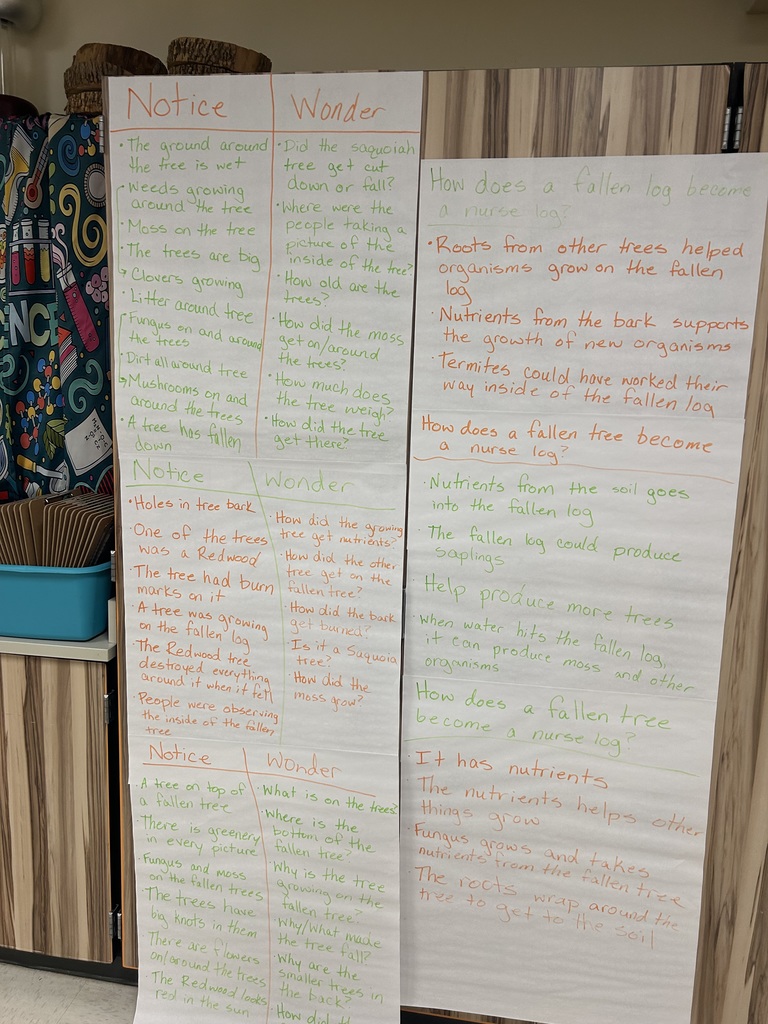 Notice
• The ground around
the tree is wet
Weeds growing
around the tree
• Moss on the tree
• The trees are big
Clovers growing
• Litter around tree
Fungus on and around
the trees
• Dirt all around tree
Mushrooms on and
around the trees
• A tree has fallen
down
Wonder
• Did the saquoiah
tree get cut
down or fall?
• Where were the
people taking a
picture of the
inside of the tree?
• How old are the
trees?
• How did the moss
get on/around
the trees?
• How much does
the tree weigh?
• How did the tree
get there?
Notice
• Holes in tree bark
• One of the trees
was a Redwood
• The tree had burn
marks on it
• A tree was growing
on the fallen log
• The Redwood tree
destroyed everything
around it when it fell
• People were observing
the inside of the fallen
tree
Wonder
• How did the growing
tree get nutrients?
• How did the other
tree get on the
fallen tree?
• How did the bark
get burned?
• Is it a Suquoia
tree?
• How did the
moss grow?
Notice
• A tree on top of
a fallen tree
• There is greenery
in every picture
• Fungus and moss
on the fallen trees
• The trees have
big knots in them
• There are flowers
on/around the trees
• The Redwood looks
red in the sun
Wonder
• What is on the trees?
• Where is the
bottom of the
fallen tree?
• Why is the tree
growing on the
fallen tree?
• Why/What made
the tree fall?
• Why are the
smaller trees in
the back?
• How did
How does a fallen log become
a nurse log?
• Roots from other trees helped
organisms grow on the fallen
log
• Nutrients from the bark supports
the growth of new organisms
• Termites could have worked their
way inside of the fallen log
How does a fallen tree become
a nurse log?
• Nutrients from the soil goes
into the fallen log
• The fallen log could produce
saplings
• Help produce more trees
• when water hits the fallen log,
it can produce moss and other
organisms
How does a fallen tree
become a nurse log?
• It has nutrients
• The nutrients helps other
things grow
• Fungus grows and takes
nutrients from the fallen tree
• The roots wrap around the
tree to get to the soil
ENCE